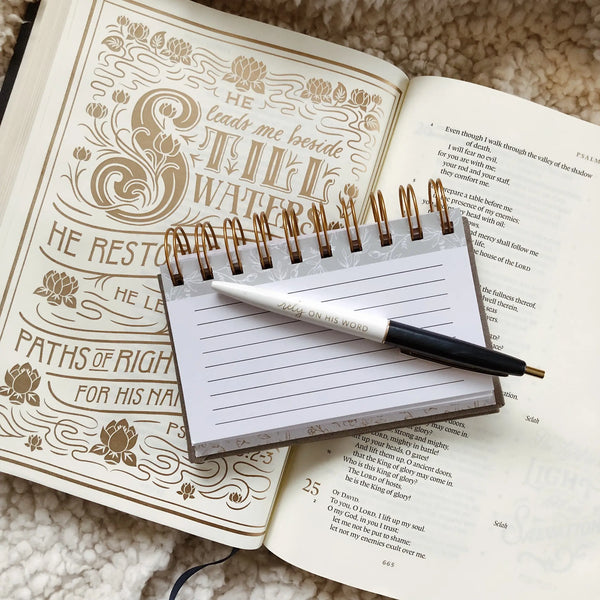 HE
leads me beside
STILL
WATERS
HE RESTO
HE LE
PATHS OF RIGH
FOR HIS NA
PS
23:2-3
rely ON HIS WORD
PSALM
4 Even though I walk through the valley of the shadow
of death,
I will fear no evil,
for you are with me;
your rod and your staff,
they comfort me.
prepare a table before me
presence of my enemies;
my head with oil;
and mercy shall follow me
life,
house of the LORD
the fullness thereof
well therein,
seas
Selah
up your heads, O gates!
And lift them up, O ancient doors,
that the King of glory may come in.
Who is this King of glory?
The LORD of hosts,
he is the King of glory!
Selah
25
OF DAVID.
To you, O LORD, I lift up my soul.
O my God, in you I trust;
let me not be put to shame;
let not my enemies exult over me.
665